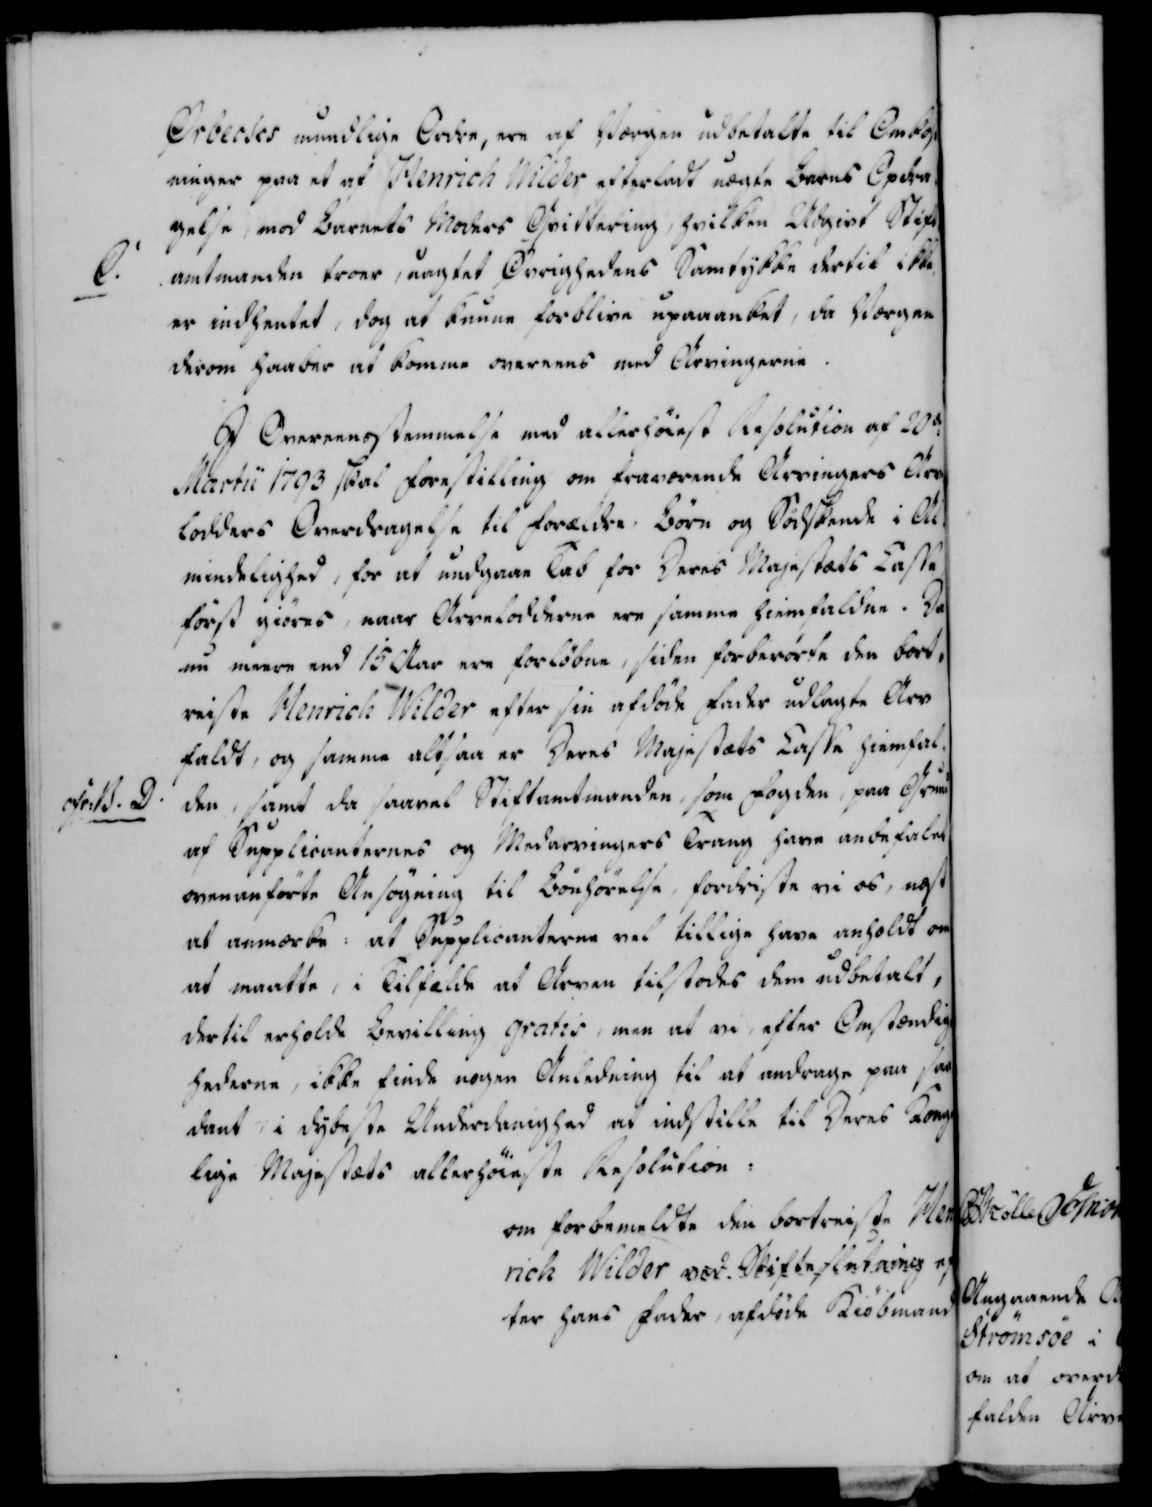 Ørbecks mundlige Ordre, ere af Værgen udbetalte til Omkost
ninger paa et af Henrich Wilder efterladt uægte Barns Opdra,
gelse, mod Barnets Moders Qvittering, hvilken Udgivt Stift
C. amtmanden troer, uagtet Øvrighedens Samtykke dertil ikke
er indhentet, dog at kunne forblive upaaanket, da Værgen
derom haaber at komme overeens med Arvingerne.
I Overeensstemmelse med allerhöieste Resolution af 20de
Martii 1793 skal Forestilling om fraværende Arvingers Arv
lodders Overdragelse til Forældre, Börn og Södskende i Al,
mindelighed, for at undgaae Tab for Deres Majestæts Casse
först giöres, naar Arvelodderne ere samme hiemfaldne. Da
nu meere end 15 Aar ere forløbne, siden forberörte den bort,
reiste Henrich Wilder efter sin afdöde Fader udlagte Arv
faldt, og samme altsaa er Deres Majestæts Casse hiemfal,
D. den, samt da saavel Stiftamtmanden, som Fogden, paa Grund
af Supplicanternes og Medarvingers Trang have anbefalet
ovenanförte Ansögning til Bönhörelse, fordriste vi os, næst
at anmærke: at Supplicanterne vel tillige have anholdt om
at maatte, i Tilfælde at Arven tilstodes dem udbetalt,
dertil erholde Bevilling gratis, men at vi, efter Omstændig
hederne, ikke finde nogen Anledning til at andrage paa saa
dant, i dybeste Underdanighed at indstille til Deres Konge
lige Majestæts allerhöieste Resolution:
om forbemeldte den bortreiste Hen
rich Wilder ved Skifteslutning ef
ter hans Fader, afdöde Kiöbmand
Angaaende
Strömsöe i
om at overd
falden Arve